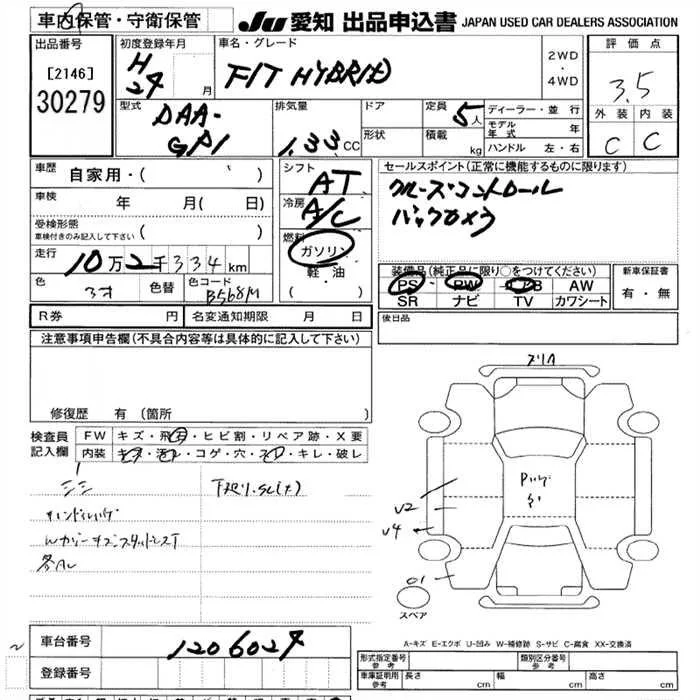 車内保管・守衛保管
JU 愛知 出品申込書 JAPAN USED CAR DEALERS ASSOCIATION
出品番号
[2146]
30279
初度登録年月
H
24 月
車名・グレード
FIT HYBRID
2WD
・
4WD
評価点
3.5
外装 内装
C C
型式
DAA-
GP1
排気量
1.33 CC
ドア
形状
定員
5人
積載
kg
ディーラー・並行
モデル年式 年
ハンドル 左・右
車歴
自家用・( )
車検 年 月( 日)
受検形態
車検付きのみ記入して下さい ( )
走行 10万2千334km
色 色替 色コード
B568M
シフト
AT
冷房
A/C
燃料
ガソリン
・
軽・油
( )
セールスポイント(正常に機能するものに限ります)
クルーズコントロール
バックカメラ
装備品(純正品に限り○をつけてください)
PS PW AW
SR ナビ TV カワシート
新車保証書
有・無
後日品
R券 円 名変通知期限 月 日
注意事項申告欄(不具合内容等は具体的に記入して下さい)
修復歴 有(箇所 )
検査員
記入欄
FW キズ・飛石・ヒビ割・リペア跡・X要
内装 キズ・汚レ・コゲ・穴・スレ・キレ・破レ
V2
V4
スペア
A-キズ E-エクボ U-凹み W-補修跡 S-サビ C-腐食 XX-交換済
車台番号 1206027
登録番号
形式指定番号
参考
類別区分番号
参考
車庫証明用
参考
長さ cm 幅 cm 高さ cm